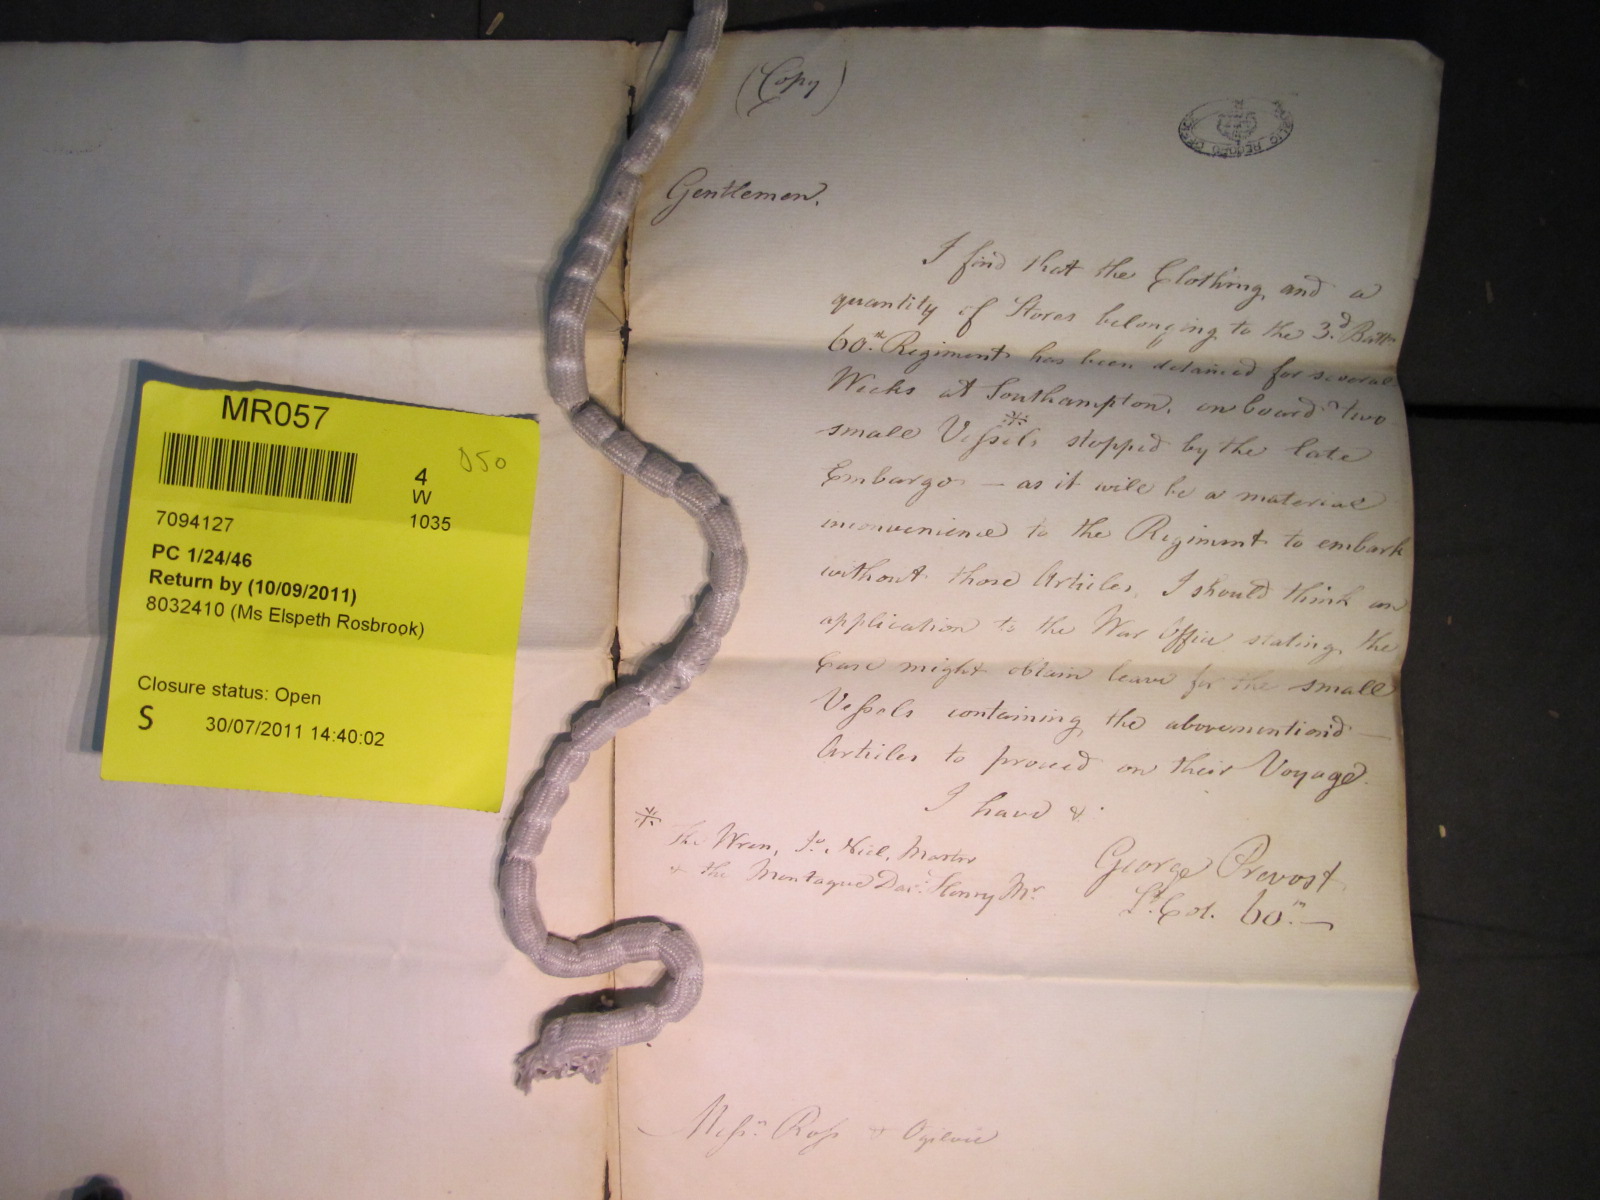 MR057
050
4
W
1035
7094127
PC 1/24/46
Return by (10/09/2011)
8032410 (Ms Elspeth Rosbrook)
Closure status: Open
S 30/07/2011 14:40:02
(Copy)
PUBLIC RECORD OFFICE
Gentlemen.
I find that the Clothing and a
quantity of Stores belonging to the 3.d Battn
60.th Regiment has been detained for several
Weeks at Southampton, on board two
small Vessels * stopped by the late
Embargo — as it will be a material
inconvenience to the Regiment to embark
without those Articles, I should think an
application to the War Office stating the
Case might obtain leave for the small
Vessels containing the abovementiond —
Articles to proceed on their Voyage.
I have &.
* The Wren, Jo. Niel, Master
& the Montague Dav. Henry Mr.
George Prevost
Lt. Col. 60.th —
Messrs. Ross & Ogilvie